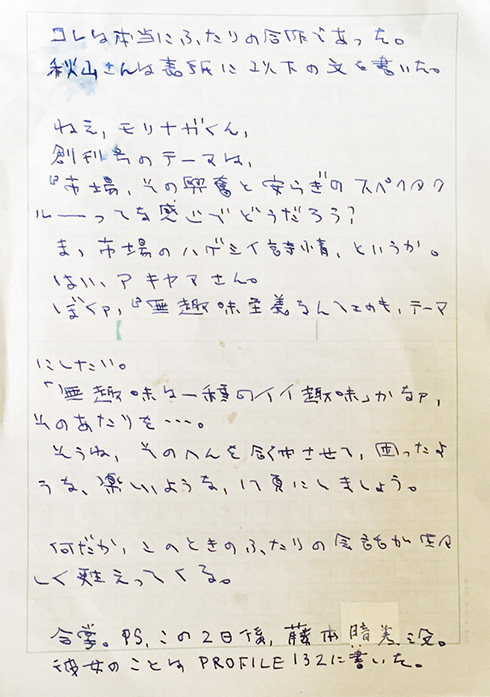 コレは本当にふたりの合作であった。
秋山さんは表紙に以下の文を書いた。
ねえ，モリナガくん，
創刊号のテーマは，
『市場，その興奮と安らぎのスペクタク
ル――って な感じでどうだろう？
ま，市場のハゲシイ詩情，というか。
はい，アキヤマさん。
ぼくァ，『無趣味主義なんてのも，テーマ
にしたい。
「無趣味は一種のイイ趣味」かなァ，
そのあたりを…。
そうね，そのへんを合体させて，困ったよ
うな，楽しいような，17頁にしましょう。
何だか，このときのふたりの会話が生々
しく甦えってくる。
合掌。PS，この2日後，藤本 晴美 没。
彼女のことは PROFILE 132に書いた。